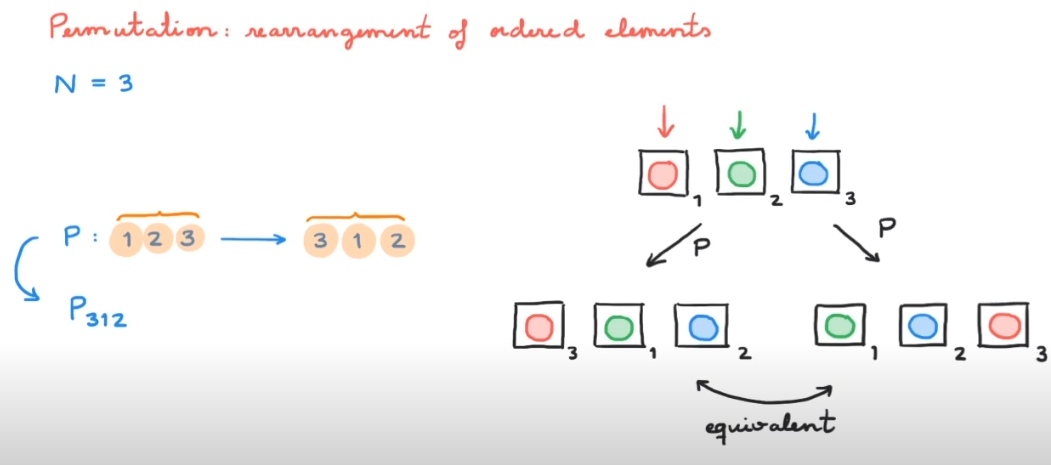 Permutation: rearrangement of ordered elements
N = 3
1 2 3
P : 1 2 3 → 3 1 2
P P
P312
3 1 2 1 2 3
equivalent